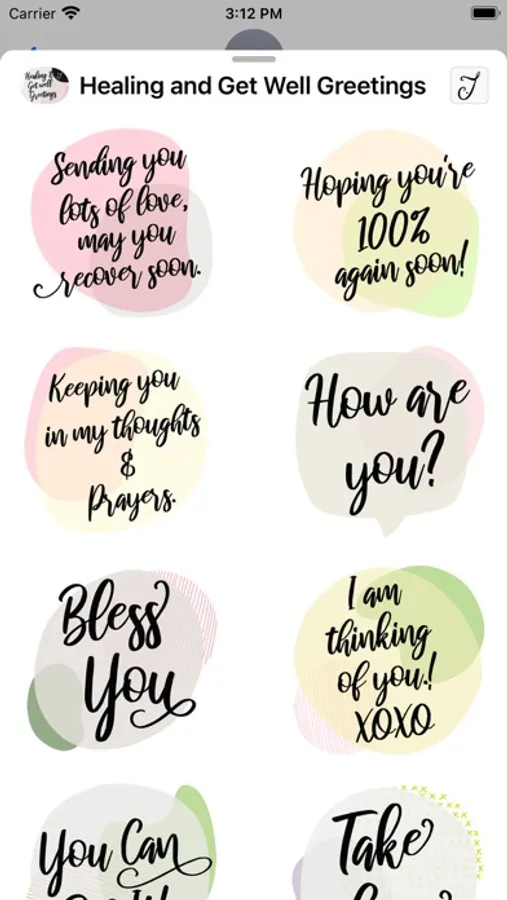 Carrier 3:12 PM
Healing and Get Well Greetings
Sending you
lots of love,
may you
recover soon.
Hoping you're
100%
again soon!
Keeping you
in my thoughts
&
Prayers.
How are
you?
Bless
You
I am
thinking
of you.!
XOXO
You Can
Take